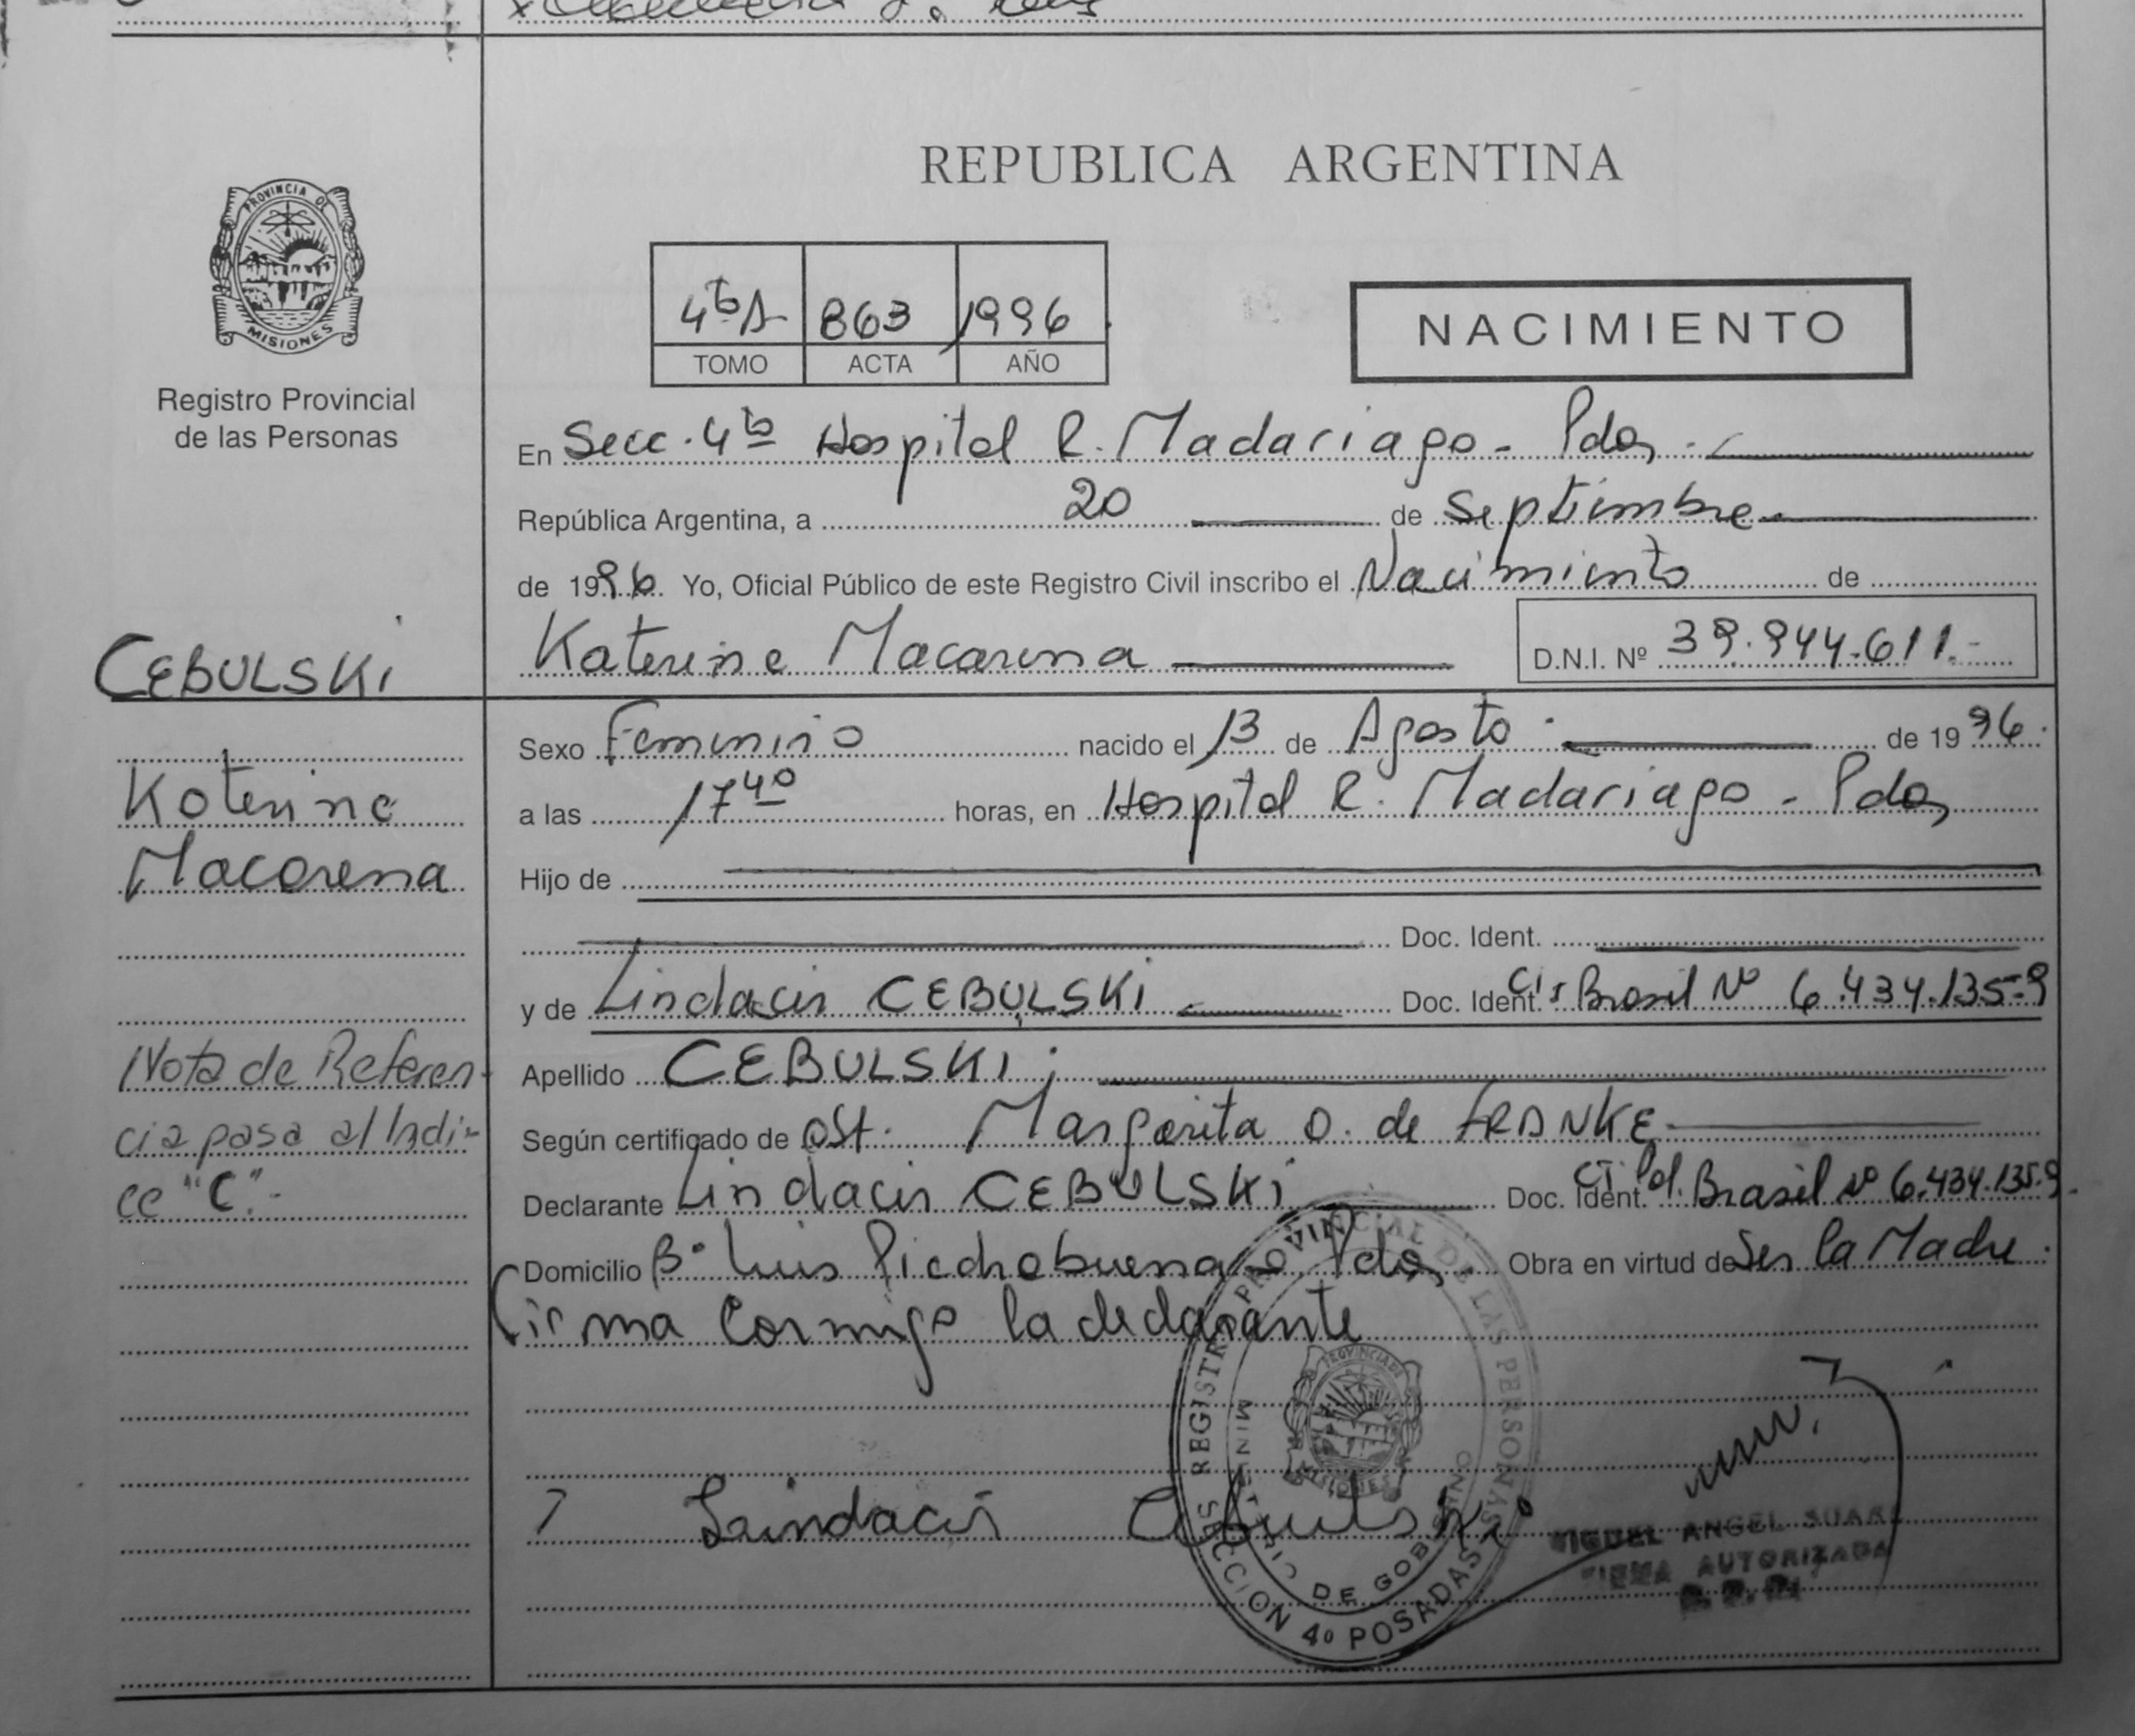 PROVINCIA DE
MISIONES
Registro Provincial
de las Personas
REPUBLICA ARGENTINA
4ta 863 1996
TOMO ACTA AÑO
NACIMIENTO
En Secc. 4ta Hospital R. Madariaga - Pdas
República Argentina, a 20 de septiembre
de 1996 Yo, Oficial Público de este Registro Civil inscribo el Nacimiento de
CEBULSKI
Katerine Macarena D.N.I. Nº 39.944.611.-
Sexo Femenino nacido el 13 de Agosto de 1996.
Katerine
a las 17 40 horas, en Hospital R. Madariaga - Pdas
Macarena
Hijo de
Doc. Ident.
y de Lindacir CEBULSKI Doc. Ident. Brasil Nº 6.434.135-9
Nota de Referen-
cia pasa al Indi-
ce "C".-
Apellido CEBULSKI
Según certificado de Ost. Margarita O. de FRANKE
Declarante Lindacir CEBULSKI Doc. Ident. Brasil Nº 6.434.135-9
Domicilio Bº Luis Piedrabuena Pdas Obra en virtud de Ser la Madre.
Firma Conmigo la declarante
Lindacir Cebulski
REGISTRO PROVINCIAL DE LAS PERSONAS
MINISTERIO DE GOBIERNO
PROVINCIA DE
MISIONES
SECCION 4º POSADAS
MIGUEL ANGEL SUAREZ
FIRMA AUTORIZADA